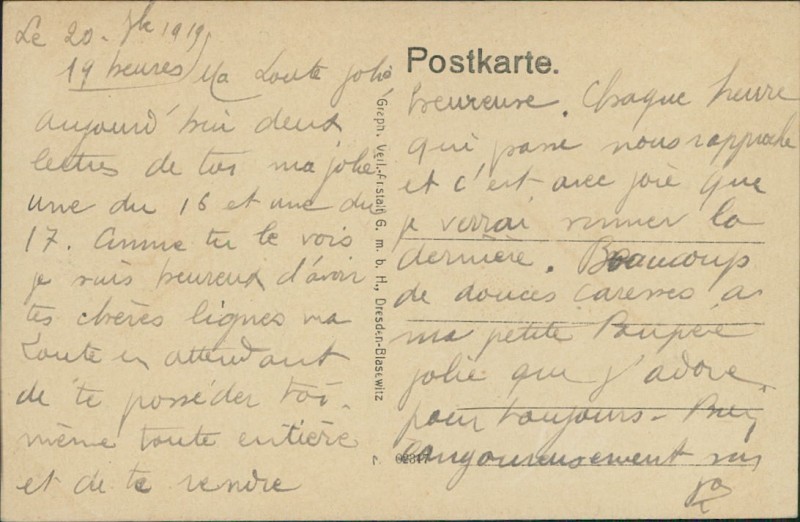 Le 20 - 7bre 1919,
19 heures) Ma Loute jolie
aujourd'hui deux
lettres de toi ma jolie
une du 16 et une du
17. Comme tu le vois
je suis heureux d'avoir
tes chères lignes ma
Loute en attendant
de te posséder toi-
même toute entière
et de te rendre
Graph. Verl.-Anstalt G. m. b. H., Dresden-Blasewitz
Postkarte.
heureuse. Chaque heure
qui passe nous rapproche
et c'est avec joie que
je verrai sonner la
dernière. Beaucoup
de douces caresses à
ma petite Poupée
jolie que j'adore,
pour toujours - Bien
langoureusement